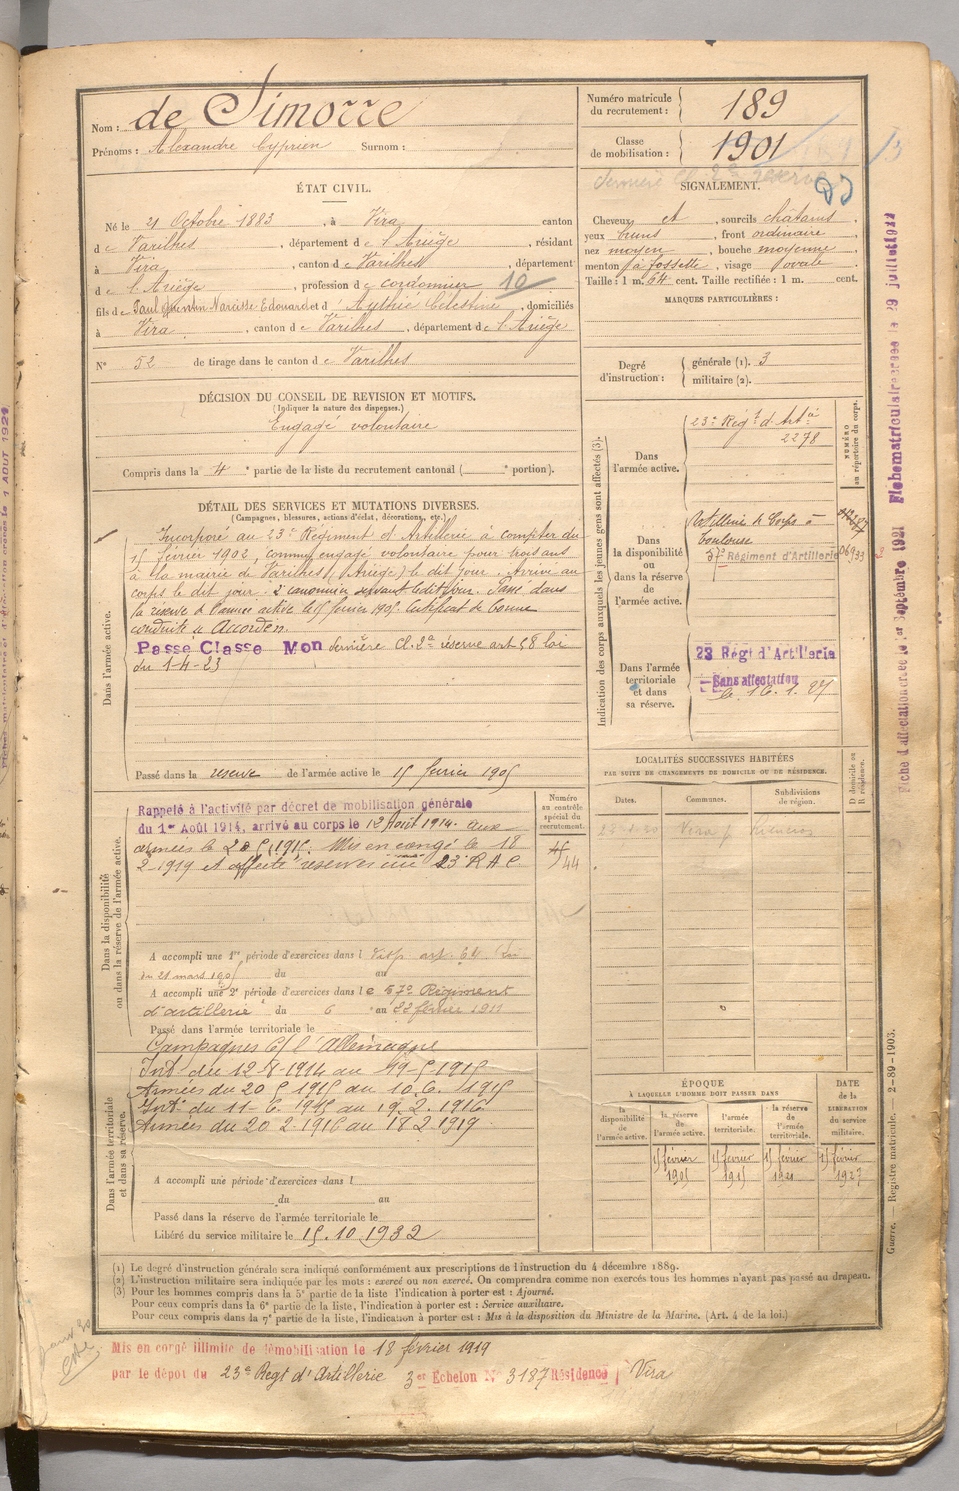 Nom : de Simorre
Prénoms : Alexandre Cyprien Surnom :
Numéro matricule du recrutement : 189
Classe de mobilisation : 1901
dernière Cl. 2e réserve
ÉTAT CIVIL.
Né le 21 Octobre 1883, à Vira canton
de Varilhes, département de l'Ariège, résidant
à Vira, canton de Varilhes, département
de l'Ariège, profession de cordonnier 10
fils de Paul Quentin Narcisse Edouard et d' Célestine, domiciliés
à Vira, canton de Varilhes, département de l'Ariège
N° 52 de tirage dans le canton de Varilhes
SIGNALEMENT.
Cheveux et, sourcils châtains,
yeux bruns, front ordinaire,
nez moyen, bouche moyenne,
menton à fossette, visage ovale.
Taille : 1 m. 64 cent. Taille rectifiée : 1 m. cent.
MARQUES PARTICULIÈRES :
Degré d'instruction : générale (1). 3
militaire (2).
DÉCISION DU CONSEIL DE REVISION ET MOTIFS.
(Indiquer la nature des dispenses.)
Engagé volontaire
Compris dans la 4e partie de la liste du recrutement cantonal ( e portion).
DÉTAIL DES SERVICES ET MUTATIONS DIVERSES.
(Campagnes, blessures, actions d'éclat, décorations, etc.)
Dans l'armée active.
Incorporé au 23e Régiment d'Artillerie à compter du
15 février 1902, comme engagé volontaire pour trois ans
à la mairie de Varilhes (Ariège) le dit jour. Arrivé au
corps le dit jour. 2e canonnier servant ledit jour. Passé dans
la réserve de l'armée active le 15 février 1905. Certificat de bonne
conduite "Accordé".
Passé Classe Mon dernière Cl. 2e réserve art 58 loi
du 1-4-23
Passé dans la réserve de l'armée active le 15 février 1905
Indication des corps auxquels les jeunes gens sont affectés (3).
NUMÉRO au répertoire du corps.
Dans l'armée active.
23e Régt d'Artie
2278
Dans la disponibilité ou dans la réserve de l'armée active.
Artillerie de Corps à
Toulouse
57e Régiment d'Artillerie
Dans l'armée territoriale et dans sa réserve.
23 Régt d'Artillerie
Sans affectation
le 16.1.27
Dans la disponibilité ou dans la réserve de l'armée active.
Numéro au contrôle spécial du recrutement.
44
Rappelé à l'activité par décret de mobilisation générale
du 1er Août 1914, arrivé au corps le 12 Août 1914. aux
armées le 20 5 1915. Mis en congé le 18
2-1919 et affecté réserves au 23e R A C
A accompli une 1re période d'exercices dans l Disp. art. 64 Loi
du 21 mars 1905 du au
A accompli une 2e période d'exercices dans le 57e Régiment
d'artillerie du 6 au 22 février 1911
Passé dans l'armée territoriale le
Dans l'armée territoriale et dans sa réserve.
Campagnes C/ l'Allemagne
Int. du 12-8-1914 au 19-5-1915
Armées du 20 5 1915 au 10.6.1915
Int. du 11-6.1915 au 19.2.1916
Armées du 20 2.1916 au 18.2.1919
A accompli une période d'exercices dans l
du au
Passé dans la réserve de l'armée territoriale le
Libéré du service militaire le 15.10.1932
LOCALITÉS SUCCESSIVES HABITÉES
PAR SUITE DE CHANGEMENTS DE DOMICILE OU DE RÉSIDENCE.
Dates. Communes. Subdivisions de région. D domicile ou R résidence.
Vira
ÉPOQUE
À LAQUELLE L'HOMME DOIT PASSER DANS
la disponibilité de l'armée active. la réserve de l'armée active. l'armée territoriale. la réserve de l'armée territoriale.
DATE de la LIBÉRATION du service militaire.
15 février 1905 15 février 1915 15 février 1921 15 février 1927
(1) Le degré d'instruction générale sera indiqué conformément aux prescriptions de l'instruction du 4 décembre 1889.
(2) L'instruction militaire sera indiquée par les mots : exercé ou non exercé. On comprendra comme non exercés tous les hommes n'ayant pas passé au drapeau.
(3) Pour les hommes compris dans la 5e partie de la liste l'indication à porter est : Ajourné.
Pour ceux compris dans la 6e partie de la liste, l'indication à porter est : Service auxiliaire.
Pour ceux compris dans la 7e partie de la liste, l'indication à porter est : Mis à la disposition du Ministre de la Marine. (Art. 4 de la loi.)
Mis en congé illimité de démobilisation le 18 février 1919
par le dépôt du 23e Régt d'Artillerie 3er Echelon N° 3187 Résidence Vira
Fiche d'affectation créée le 1er Septembre 1921 Fiche matriculaire créée le 29 juillet 1922
Guerre. — Registre matricule. — 2-89-1903.